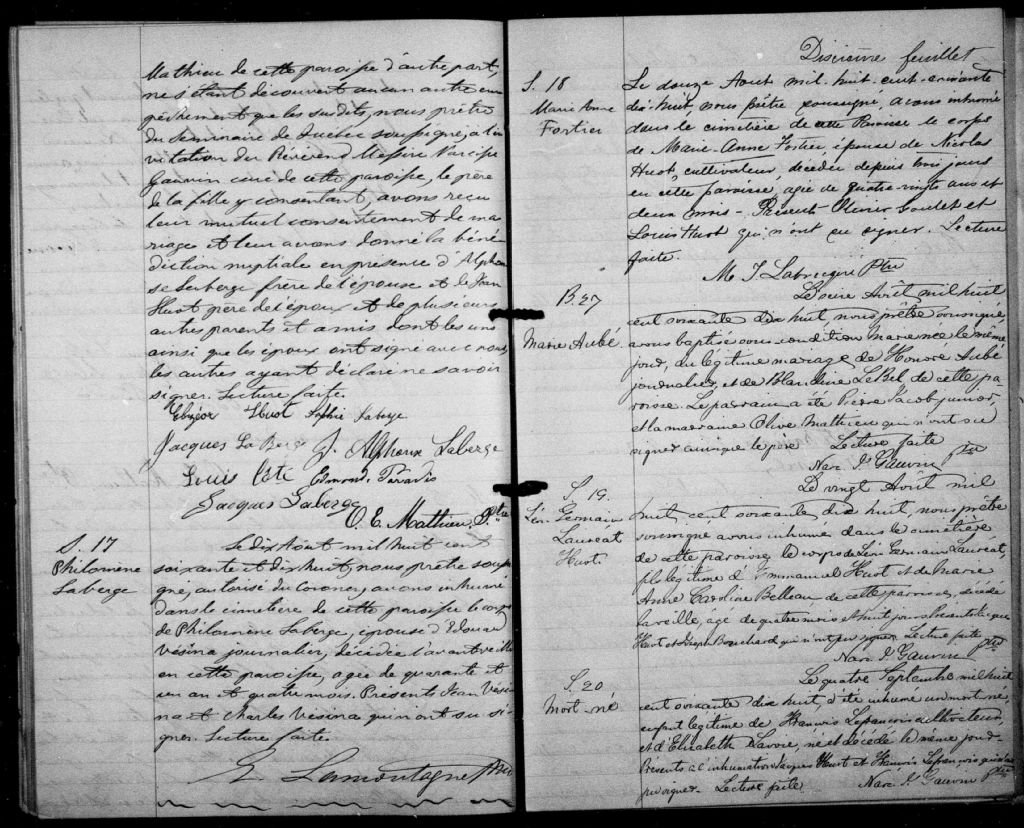 Mathieu de cette paroisse d'autre part,
ne s'étant découvert aucun autre em
pêchement que les susdits, nous prêtre
du Séminaire de Québec soussigné, à l'in
vitation du Révérend Messire Narcisse
Gauvin curé de cette paroisse, le père
de la fille y consentant, avons reçu
leur mutuel consentement de ma
riage et leur avons donné la béné
diction nuptiale en présence d'Alphon
se Laberge frère de l'épouse et de Jean
Huot père de l'époux et de plusieurs
autres parents et amis dont les uns
ainsi que les époux ont signé avec nous,
les autres ayant déclaré ne savoir
signer. Lecture faite.
Huot Sophie Laberge
Jacques La Berge J. Alphonse Laberge
Louis Coté Edmond Paradis
Jacques Laberge
O. E. Mathieu, Ptre
S. 17
Philomène
Laberge
Le dix Août mil huit cent
soixante et dix huit, nous prêtre sous
gné, autorisé du Coroner, avons inhumé
dans le cimetière de cette paroisse le corps
de Philomène Laberge, épouse d'Edouard
Vésina journalier, décédée l'avant veille
en cette paroisse, agée de quarante et
un an et quatre mois. Présents Jean Vési
na et Charles Vésina qui n'ont su si
gner. Lecture faite.
E. Lamontagne Ptre
feuillet
S. 18
Marie Anne
Fortier
Le douze Aout mil-huit-cent-soixante
dix-huit, nous prêtre soussigné, avons inhumé
dans le cimetière de cette Paroisse le corps
de Marie-Anne Fortier épouse de Nicolas
Huot, cultivateur, décédée depuis trois jours
en cette paroisse, agée de quatre-vingts ans et
deux mois - Présents Olivier Goulet et
Louis Huot qui n'ont su signer. Lecture
faite.
M. J. Ptre
B 27
Marie Aubé
Août mil huit
cent soixante dix huit nous prêtre soussigné
avons baptisé sous condition Marie née le même
jour, du légitime mariage de Honoré Aubé
journalier, et de Blandine LeBel de cette pa
roisse. Le parrain a été Pierre Jacob junior,
et la marraine Olive Mathieu qui n'ont su
signer ainsi que le père Lecture faite
Narc. J. Gauvin Ptre
S. 19.
Léon Germain
Lauréat
Huot
Le vingt Août mil
huit cent soixante dix huit, nous prêtre
soussigné avons inhumé dans le cimetière
de cette paroisse le corps de Léon Germain Lauréat,
fils légitime d'Emmanuel Huot et de Marie
Anne Caroline Belleau de cette paroisse, décédé
la veille, agé de quatre mois et huit jours Présents
Huot et Joseph Bouchard qui n'ont pu signer. Lecture faite
Narc. J. Gauvin Ptre
S. 20
Mort né
Le quatre Septembre mil huit
cent soixante dix huit, a été inhumé un mort né,
enfant légitime de François Lefrançois cultivateur,
et d'Elizabeth Savoie, né et décédé le même jour.
Présents à l'inhumation Jacques Huot et François Lefrançois
pu signer. Lecture faite. Narc. J. Gauvin Ptre